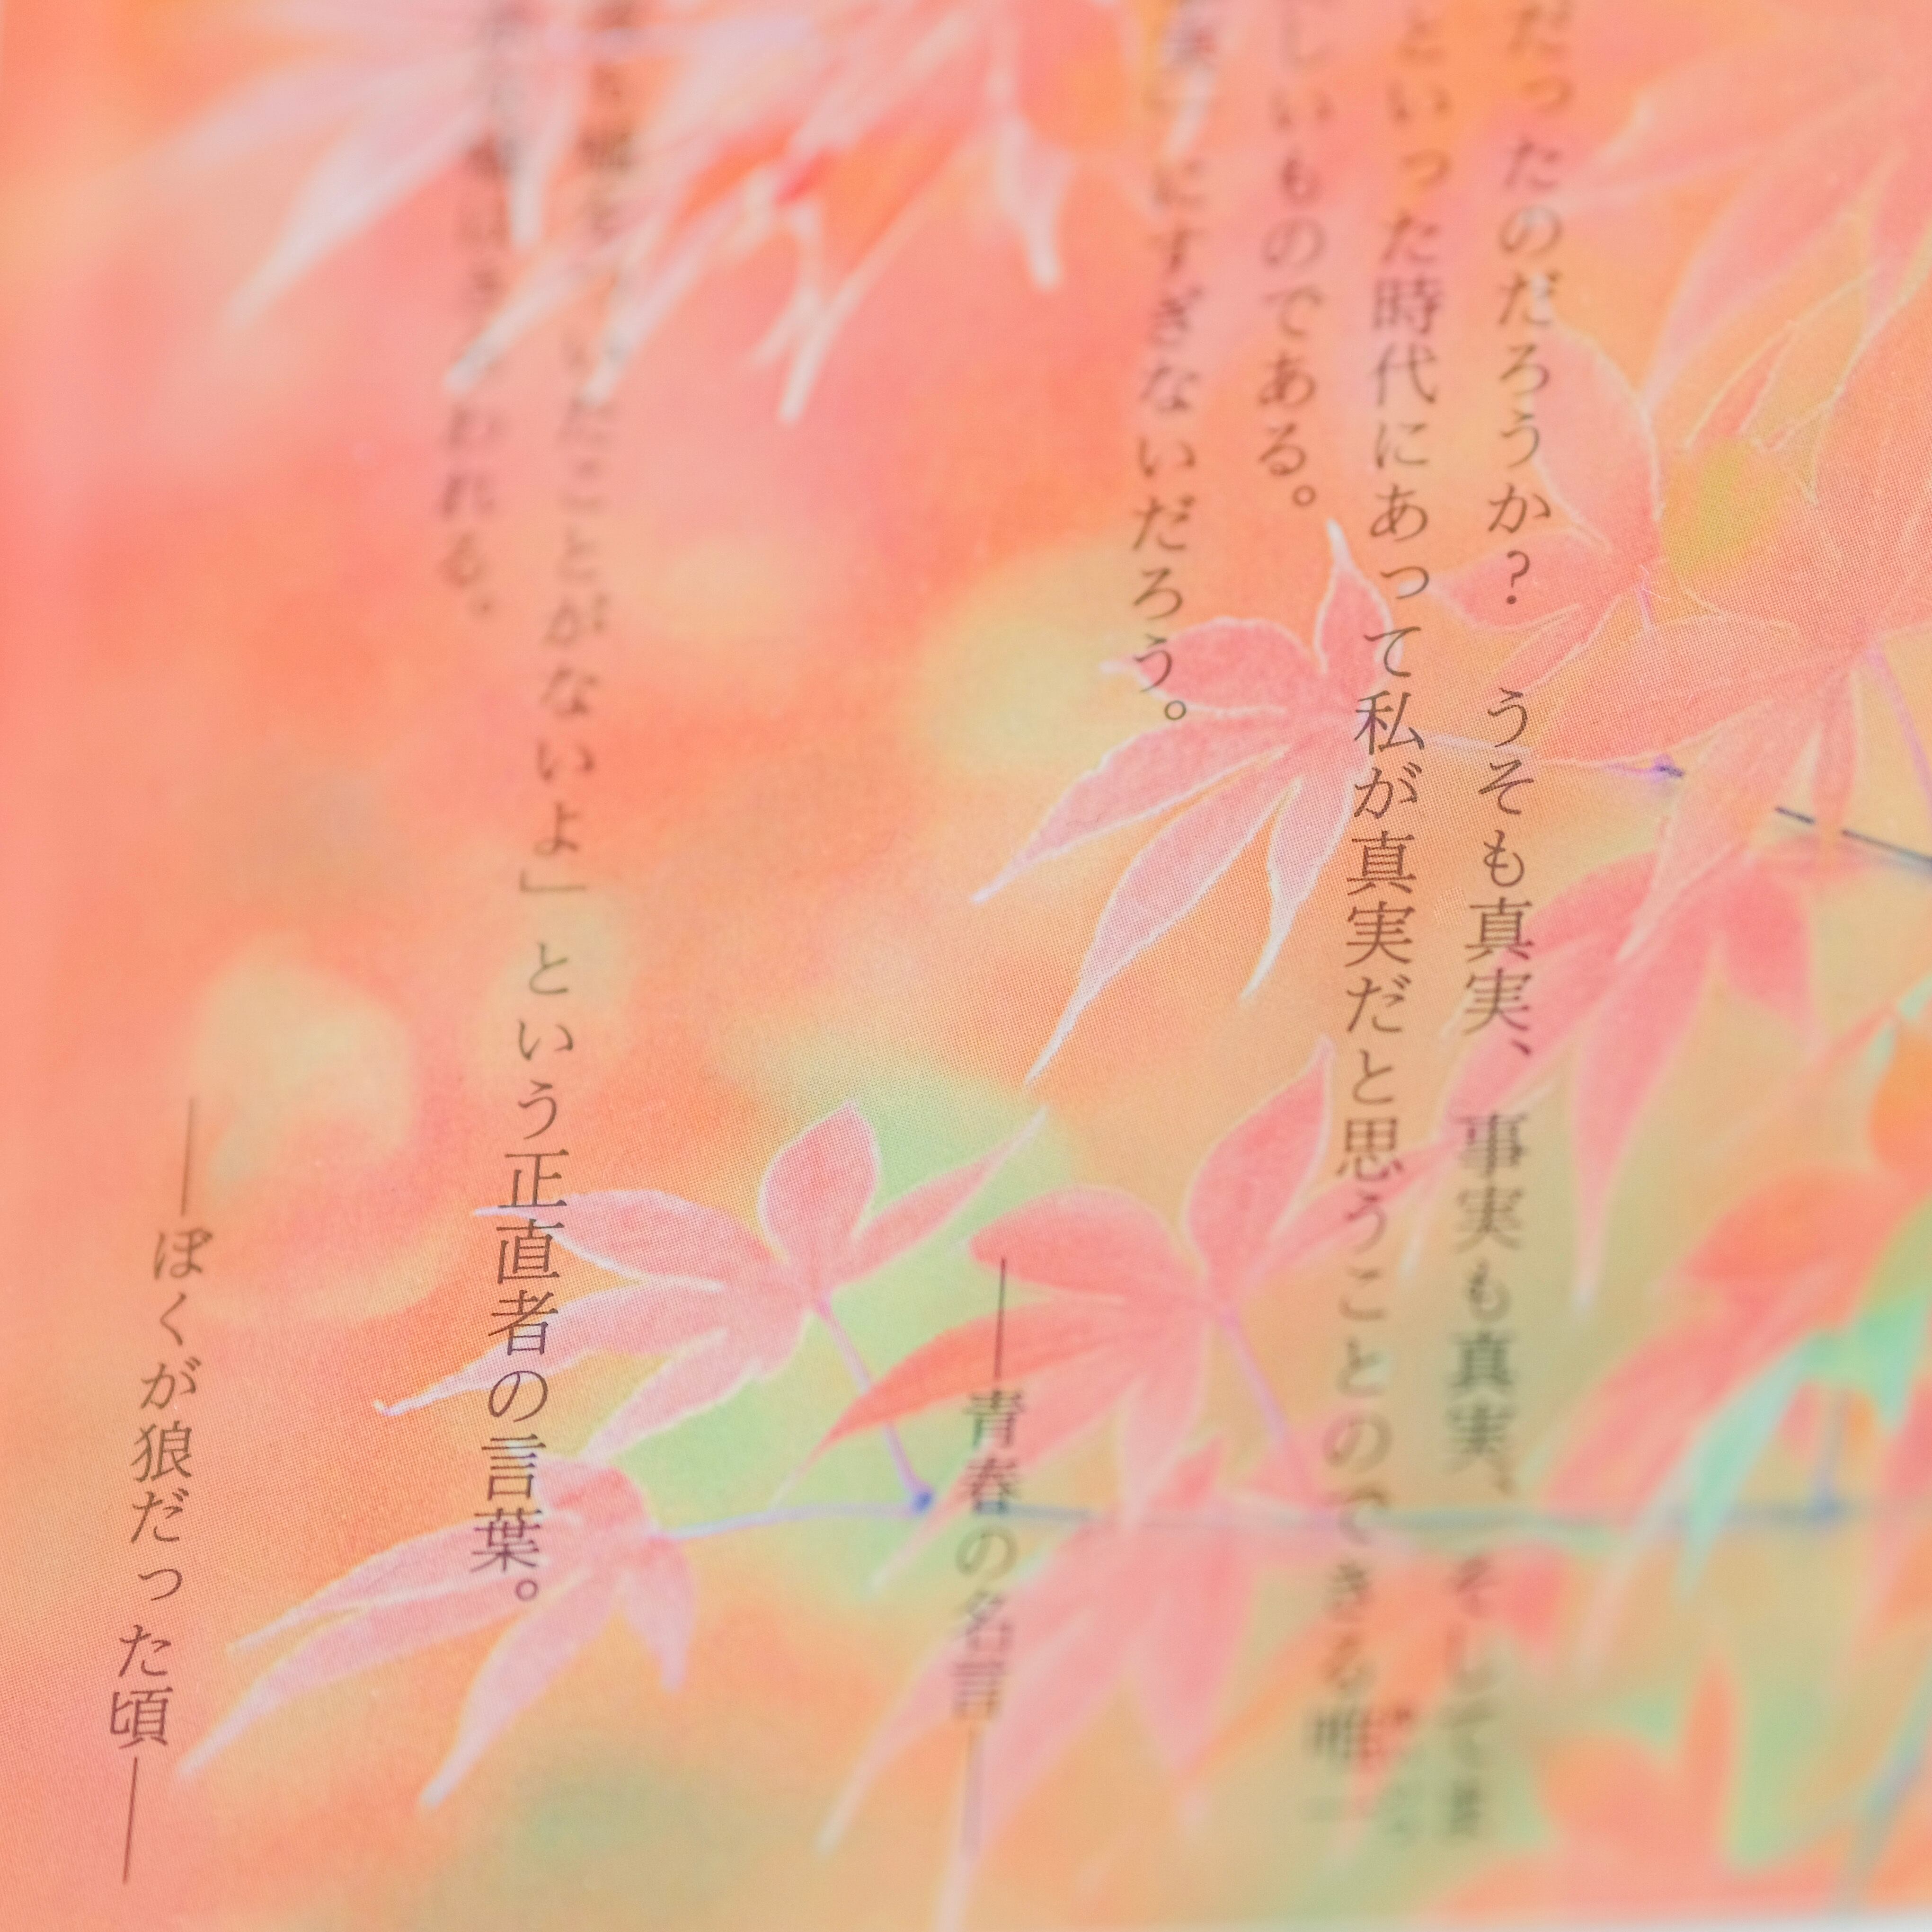 だったのだろうか？　うそも真実、事実も真実、そして
といった時代にあって私が真実だと思うことのできる唯一
しいものである。
にすぎないだろう。
―青春の名言―
嘘をついたことがないよ」という正直者の言葉。
われる。
―ぼくが狼だった頃―